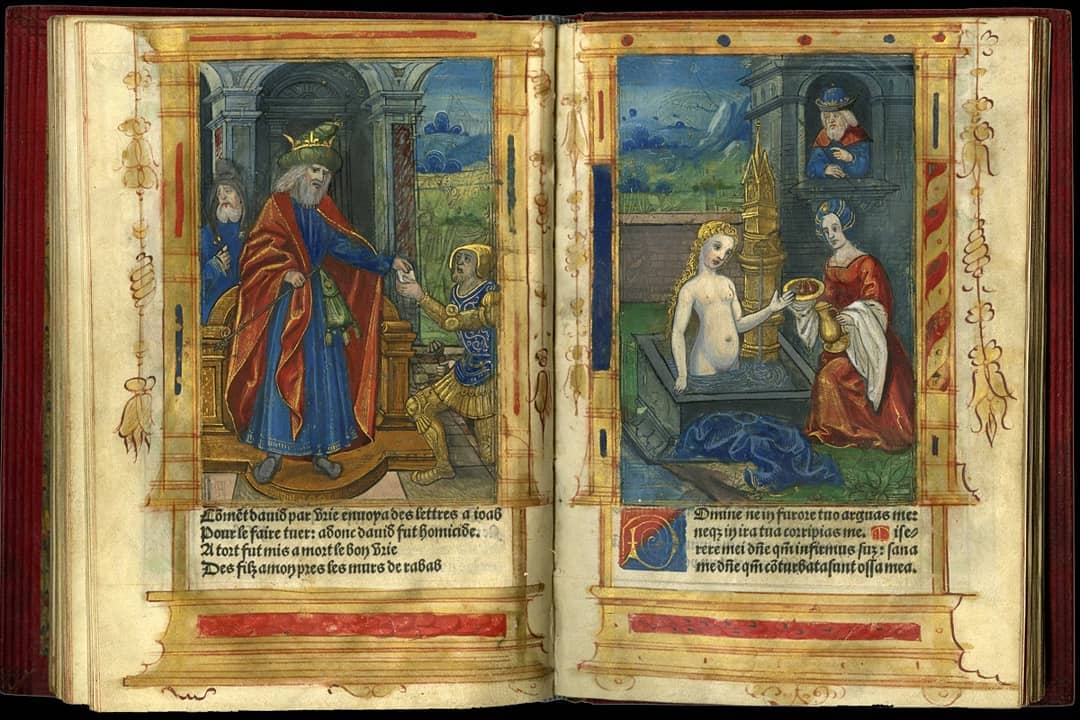 Cõmẽt dauid par Vrie enuoya des lettres a ioab
Pour le faire tuer: adonc dauid fut homicide.
A tort fut mis a mort le bon Vrie
Des filz amon pres les murs de rabab
Dmine ne in furore tuo arguas me:
neqz in ira tua corripias me. Mise-
rere mei dñe qm̃ infirmus suz: sana
me dñe qm̃ cõturbata sunt ossa mea.